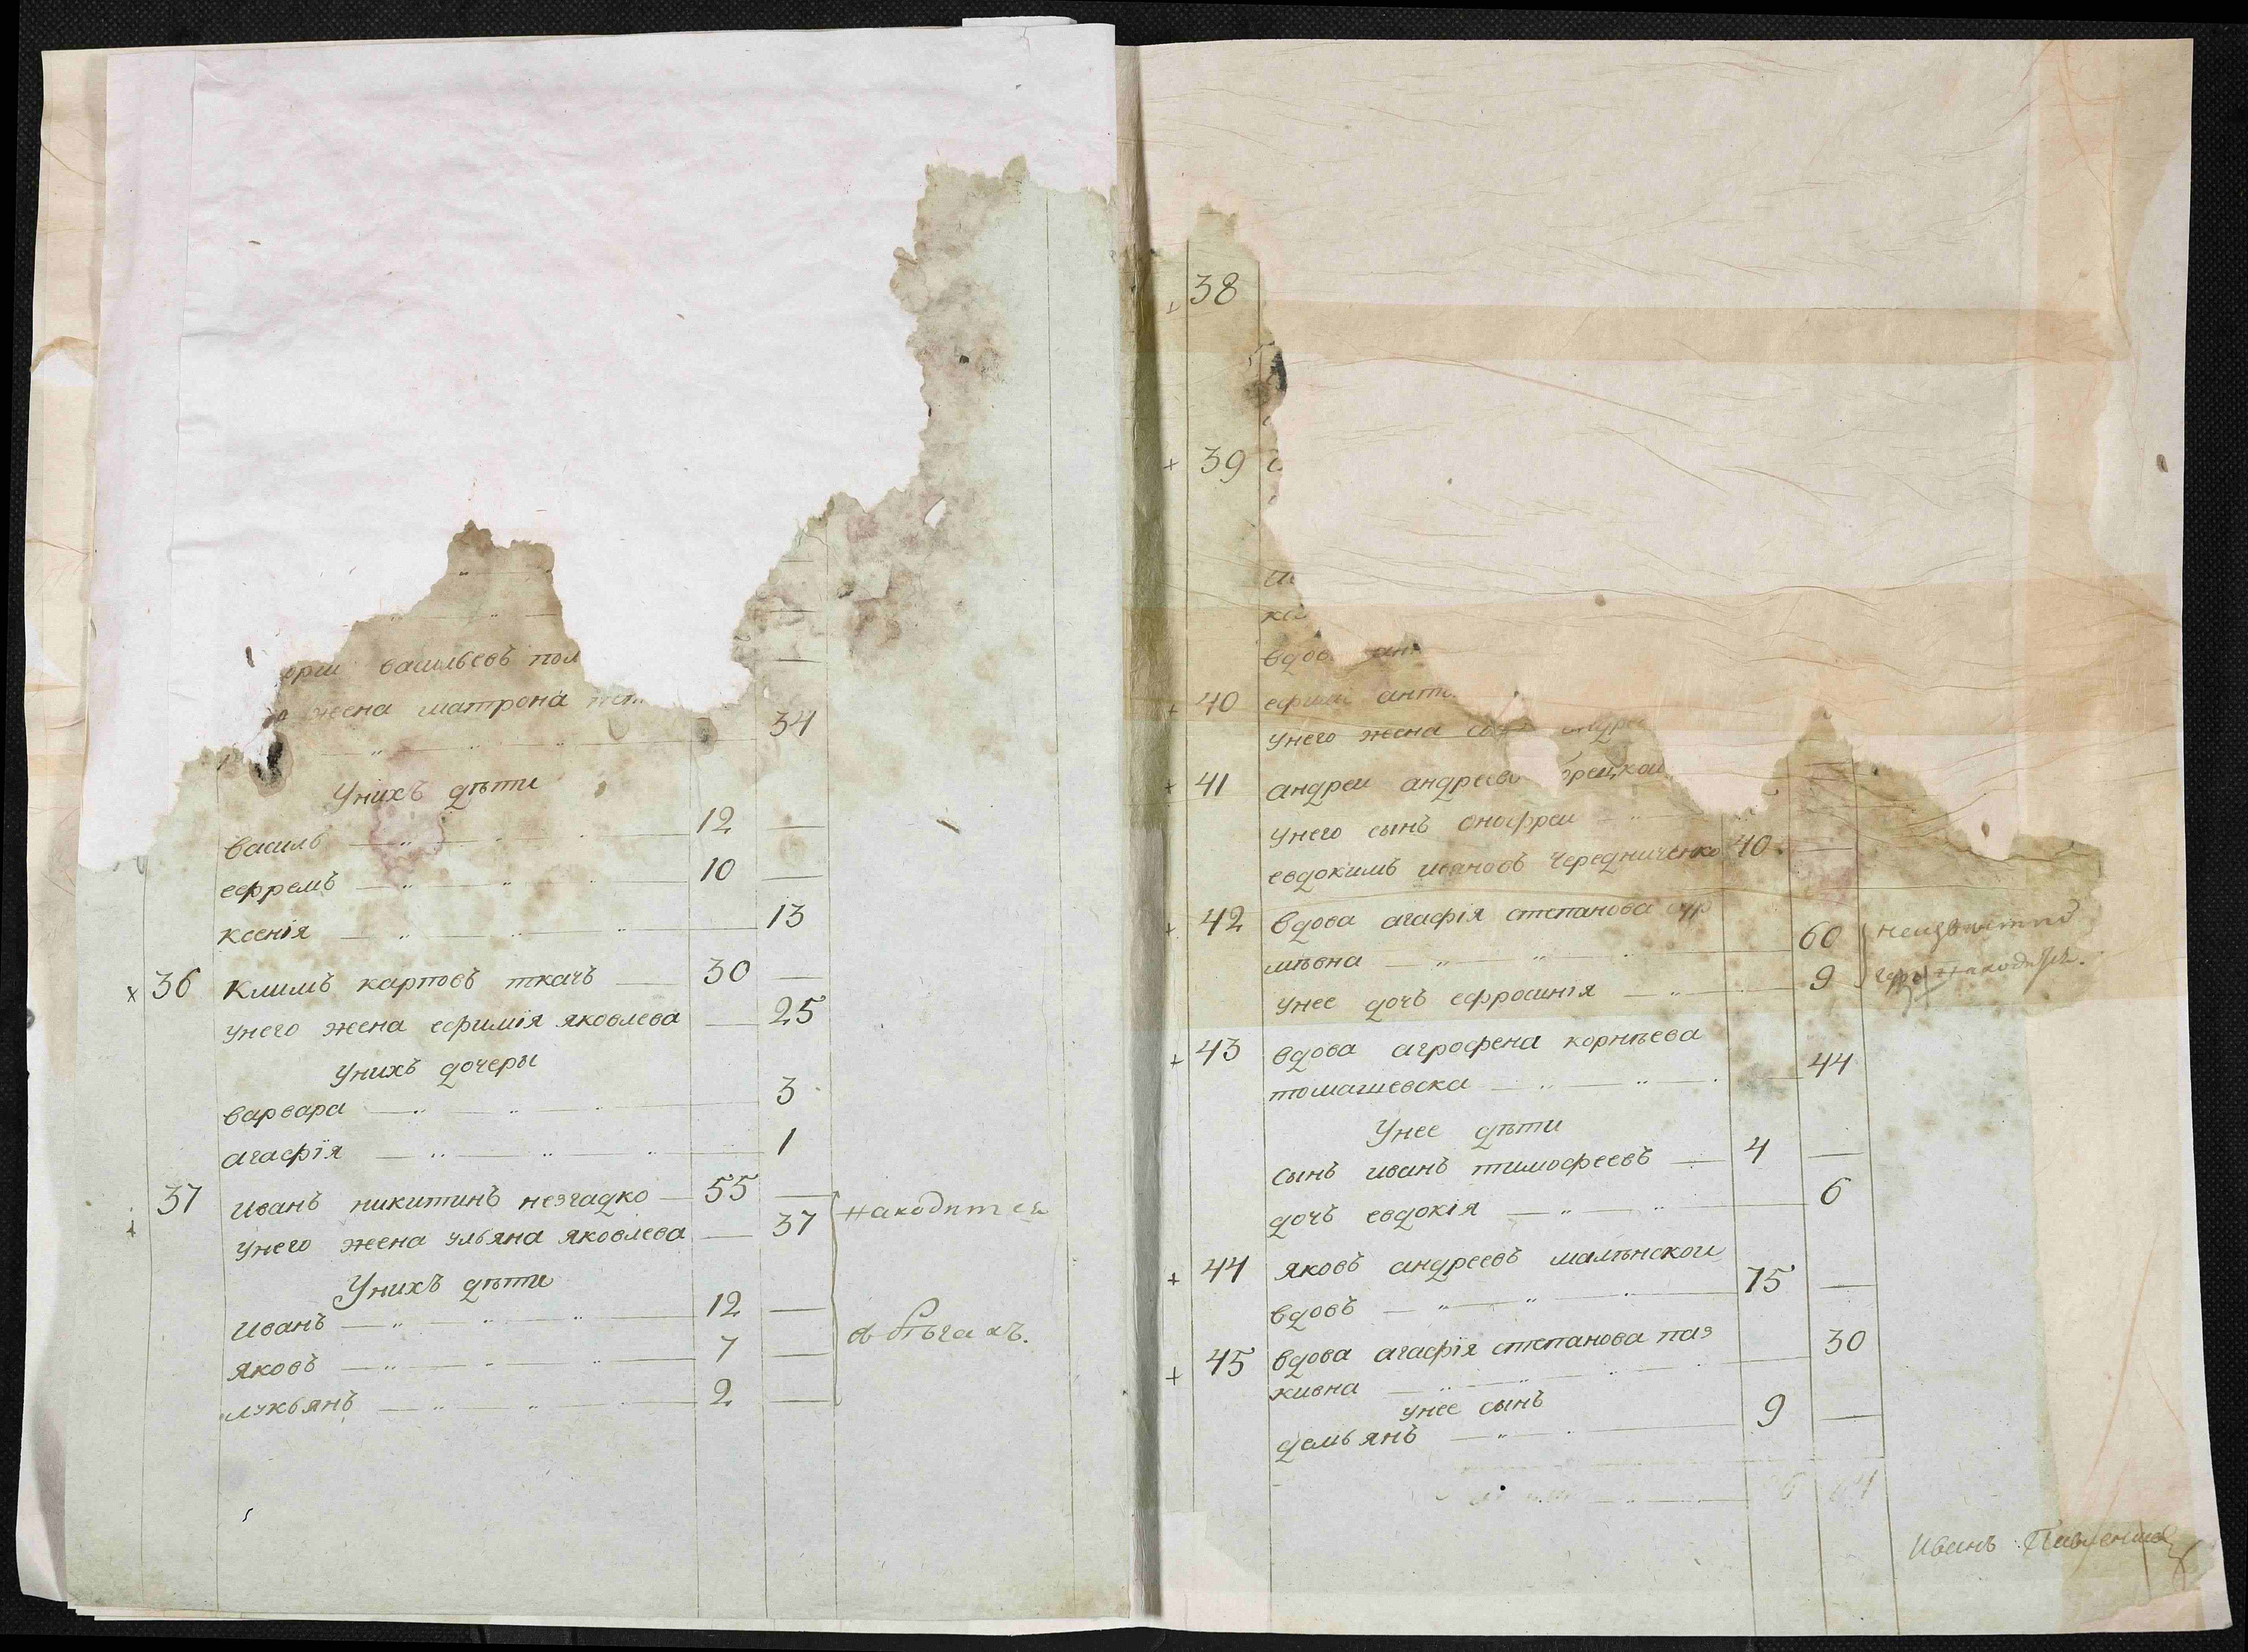 васильевъ пол
жена матрона
34
Унихъ дѣти
василь 12 —
ефремъ 10 —
ксенія 13
36 Климъ карповъ ткачъ — 30 —
унего жена ефимія яковлева — 25
Унихъ дочеры
варвара 3
агафія 1
37 иванъ никитинъ незгадко — 55 —
унего жена ульяна яковлева — 37
находится
Унихъ дѣти
иванъ 12 —
яковъ 7 —
в бѣгахъ.
лукьянъ 2 —
38
39
вдов
40 ефим анто
унего жена
41 андреи андреев рецкои
унего сынъ онофреи
евдокимъ ивановъ Чередниченко 40 —
42 вдова агафія степанова
мѣвна 60 неизвѣстно
унее дочъ ефросинія 9 где находятся.
43 вдова агрофена корнѣева
томашевска 44
Унее дѣти
сынъ иванъ тимофеевъ — 4 —
дочъ евдокія 6
44 яковъ андреевъ малѣнскои
вдовъ 75 —
45 вдова агафія степанова паз
кивна 30
унее сынъ
демьянъ 9 —
Иванъ